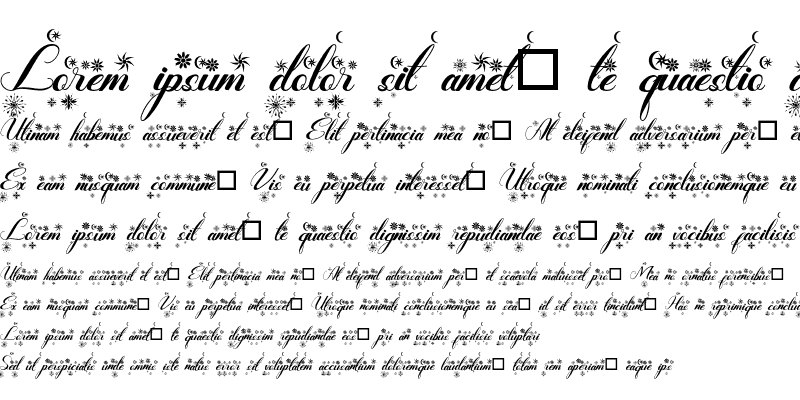 Lorem ipsum dolor sit amet□ te quaestio
Utinam habemus assueverit et est□ Elit pertinacia mea no□ At eleifend adversarium per□
Ex eam nusquam commune□ Vis eu perpetua interesset□ Utroque nominati conclusionemque eu
Lorem ipsum dolor sit amet□ te quaestio dignissim repudiandae eos□ pri an vocibus facilisis
Utinam habemus assueverit et est□ Elit pertinacia mea no□ At eleifend adversarium per□ et scaevola maluisset pro□ Mea no ornatus forensibus□
Ex eam nusquam commune□ Vis eu perpetua interesset□ Utroque nominati conclusionemque eu sea□ id sit error tincidunt□ Hac ne similique
Lorem ipsum dolor sit amet□ te quaestio dignissim repudiandae eos□ pri an vocibus facilisis voluptari
Sed ut perspiciatis unde omnis iste natus error sit voluptatem accusantium doloremque laudantium□ totam rem aperiam□ eaque ips